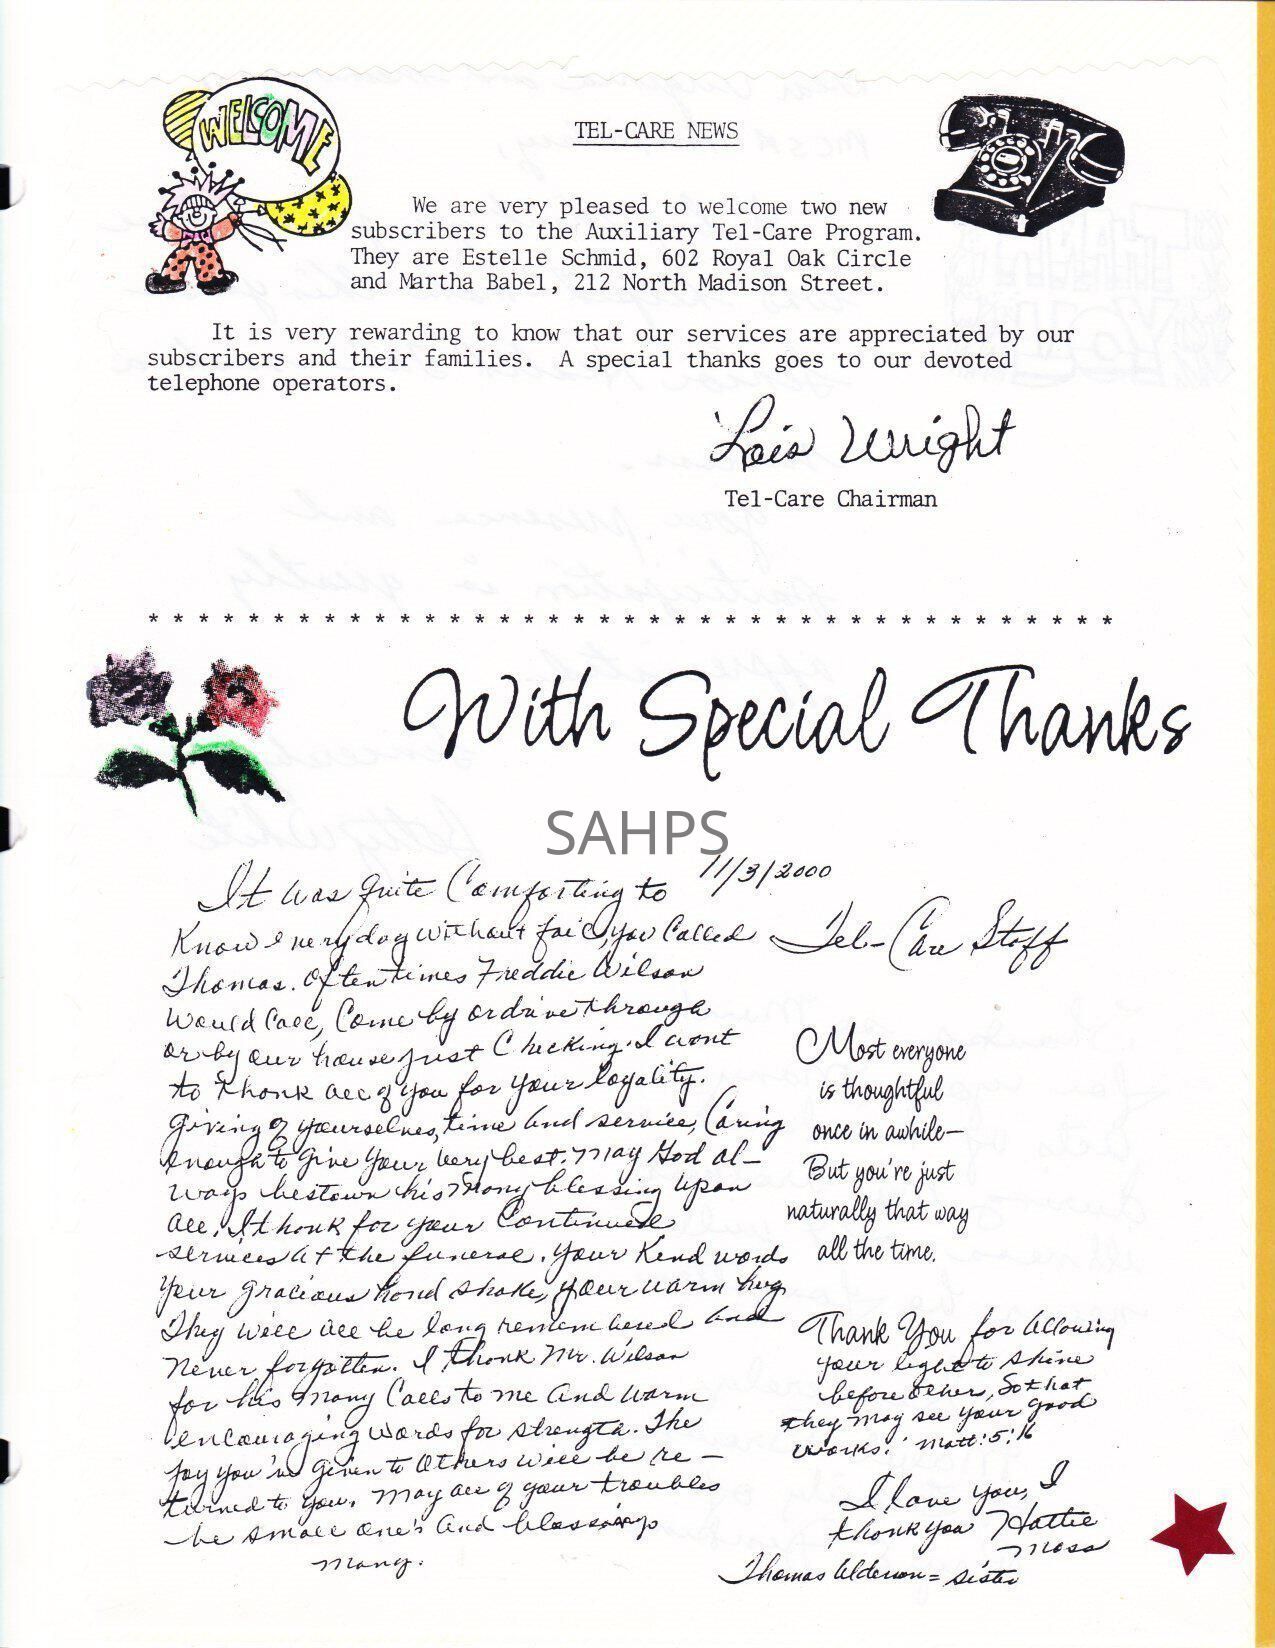 WELCOME
TEL-CARE NEWS
We are very pleased to welcome two new
subscribers to the Auxiliary Tel-Care Program.
They are Estelle Schmid, 602 Royal Oak Circle
and Martha Babel, 212 North Madison Street.
It is very rewarding to know that our services are appreciated by our
subscribers and their families. A special thanks goes to our devoted
telephone operators.
Lois Wright
Tel-Care Chairman
* * * * * * * * * * * * * * * * * * * * * * * * * * * * * * * * * * * * * * *
With Special Thanks
SAHPS
11/3/2000
It was quite Comforting to
Know everyday without fail, you Called
Thomas. Often times Freddie Wilson
Would Call, Come by or drive through
or by our house just Checking. I want
to thank all of you for your loyality.
Giving of yourselves, time and service, Caring
enough to give your very best. May God al-
ways bestown his Many blessing upon
all. I thank for your Continued
services at the funeral. Your Kind words
Your gracious hand shake, your warm hug
They will all be long remembered and
Never forgotten. I thank Mr. Wilson
for his many Calls to me and warm
encouraging words for strength. The
joy you've given to Others will be re-
turned to you. May all of your troubles
be small one's and blessings
many.
Tel-Care Staff
Most everyone
is thoughtful
once in awhile—
But you're just
naturally that way
all the time.
Thank You for allowing
your light to shine
before others, So that
they may see your good
works. Matt: 5:16
I love you, I
thank you Hattie
Moss
Thomas Alderson = sister